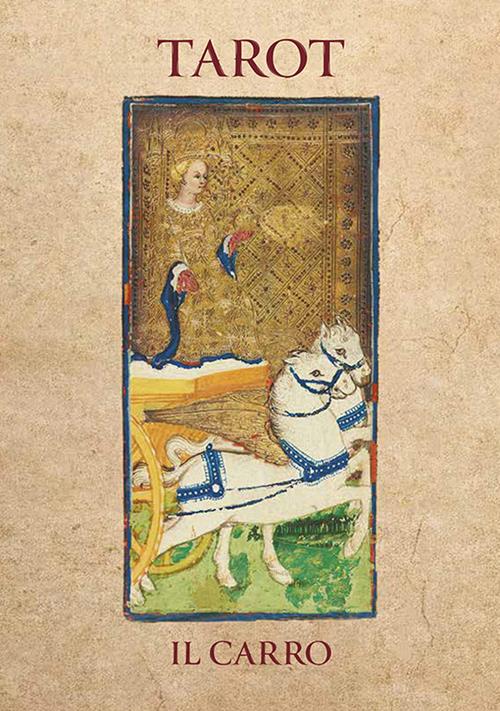 TAROT
IL CARRO